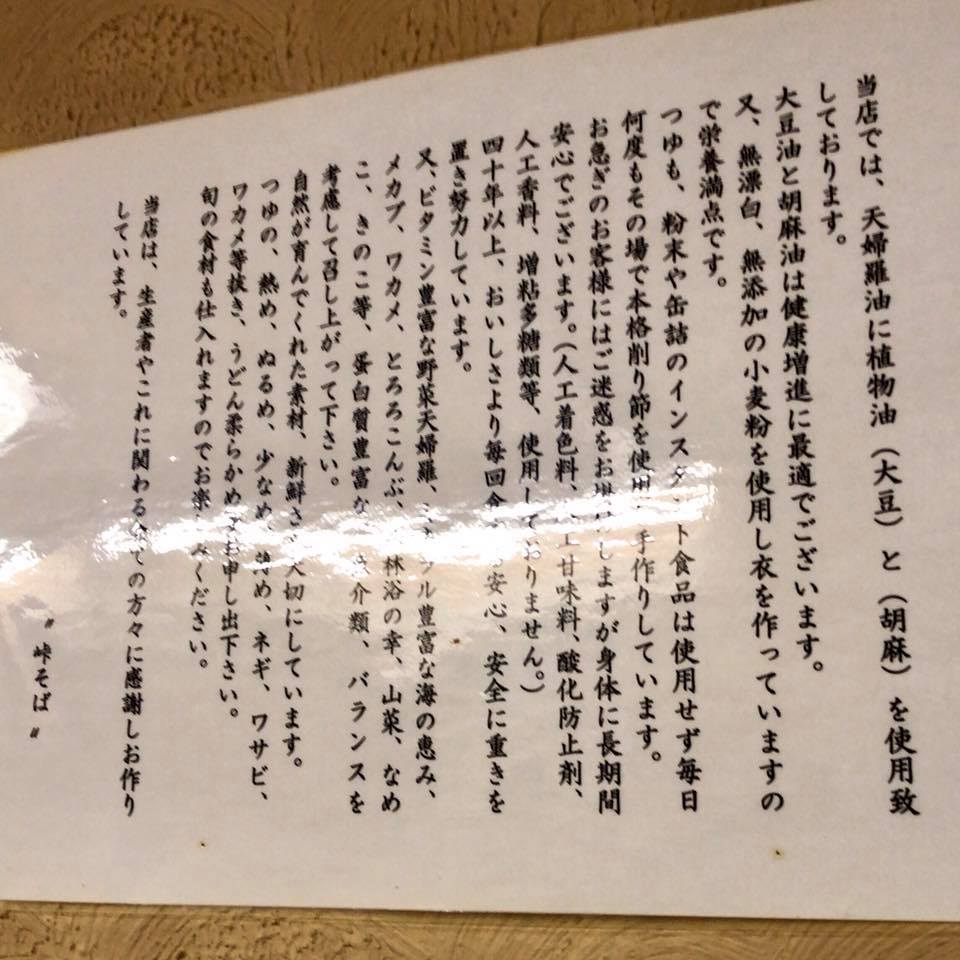 当店では、天婦羅油に植物油(大豆)と(胡麻)を使用致
しております。
大豆油と胡麻油は健康増進に最適でございます。
又、無漂白、無添加の小麦粉を使用し衣を作っていますの
で栄養満点です。
つゆも、粉末や缶詰のインスタント食品は使用せず毎日
何度もその場で本格削り節を使用し手作りしています。
お急ぎのお客様にはご迷惑をお掛けしますが身体に長期間
安心でございます。(人工着色料、人工甘味料、酸化防止剤、
人工香料、増粘多糖類等、使用しておりません。)
四十年以上、おいしさより毎回食 安心、安全に重きを
置き努力しています。
又、ビタミン豊富な野菜天婦羅、ミネラル豊富な海の恵み、
メカブ、ワカメ、とろろこんぶ、 林浴の幸、山菜、なめ
こ、きのこ等、蛋白質豊富な 介類、バランスを
考慮して召し上がって下さい。
自然が育んでくれた素材、新鮮さ 大切にしています。
つゆの、熱め、ぬるめ、少なめ、 め、ネギ、ワサビ、
ワカメ等抜き、うどん柔らかめ お申し出下さい。
旬の食材も仕入れますのでお楽しみください。
当店は、生産者やこれに関わる全ての方々に感謝しお作り
しています。
〝峠そば〟